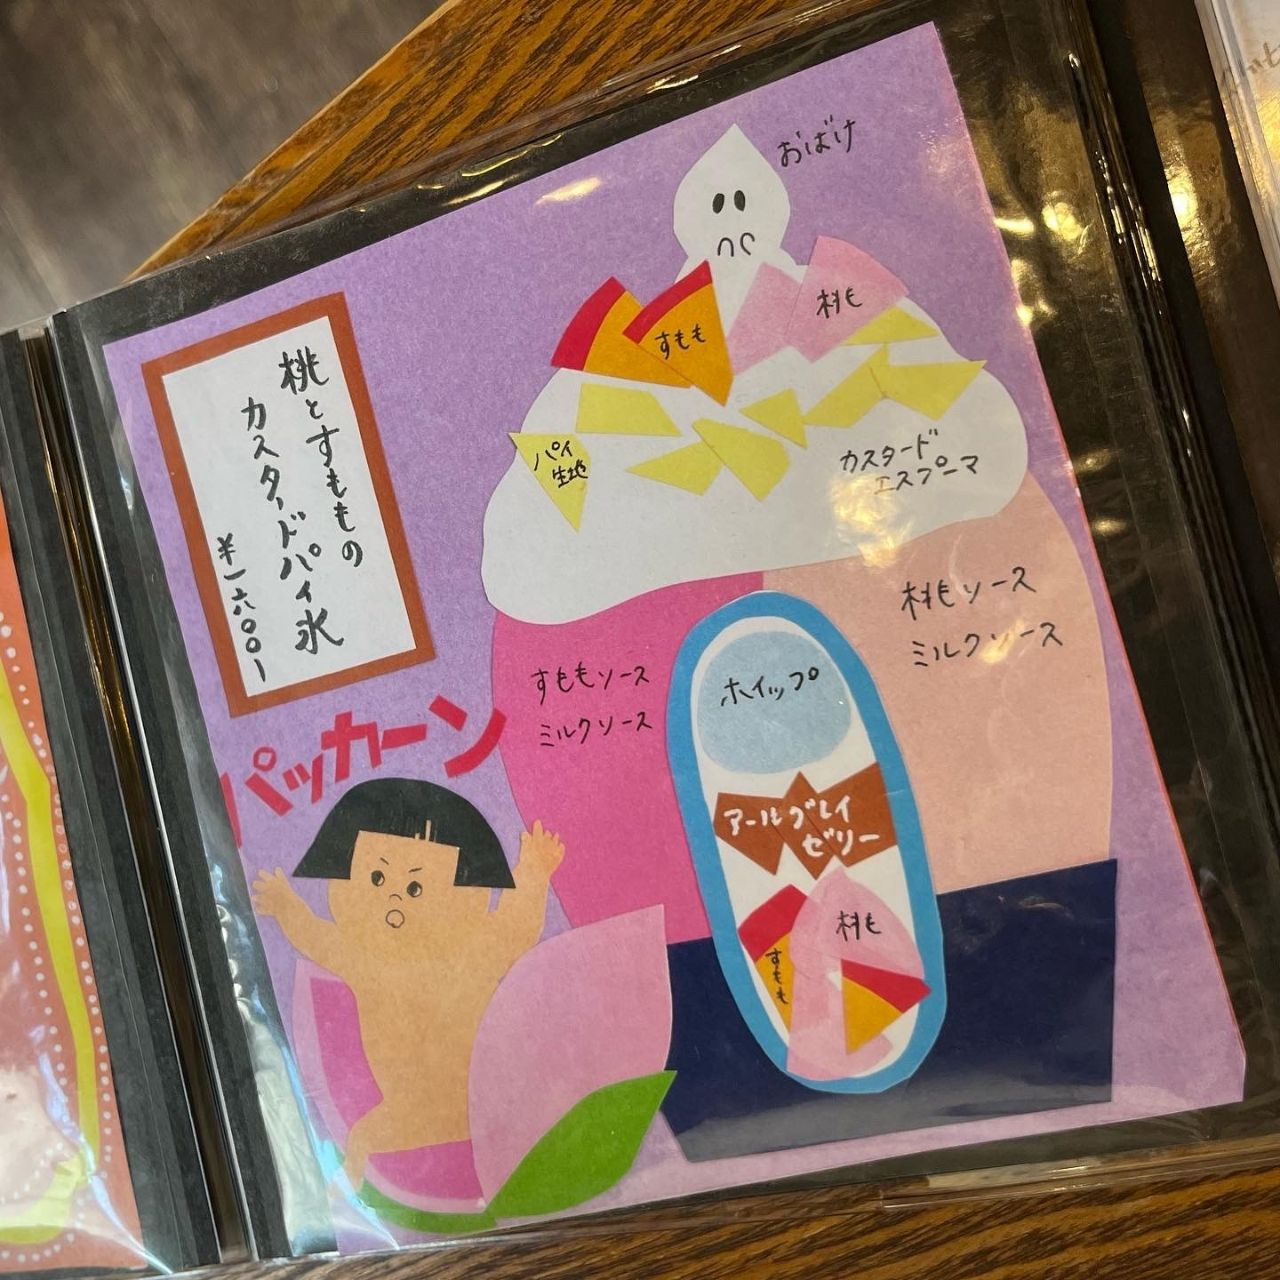 おばけ
桃
すもも
パイ
生地
カスタード
エスプーマ
桃とすももの
カスタードパイ氷
¥一六〇〇
桃ソース
ミルクソース
すももソース
ミルクソース
ホイップ
アールグレイ
ゼリー
桃
すもも
パッカーン